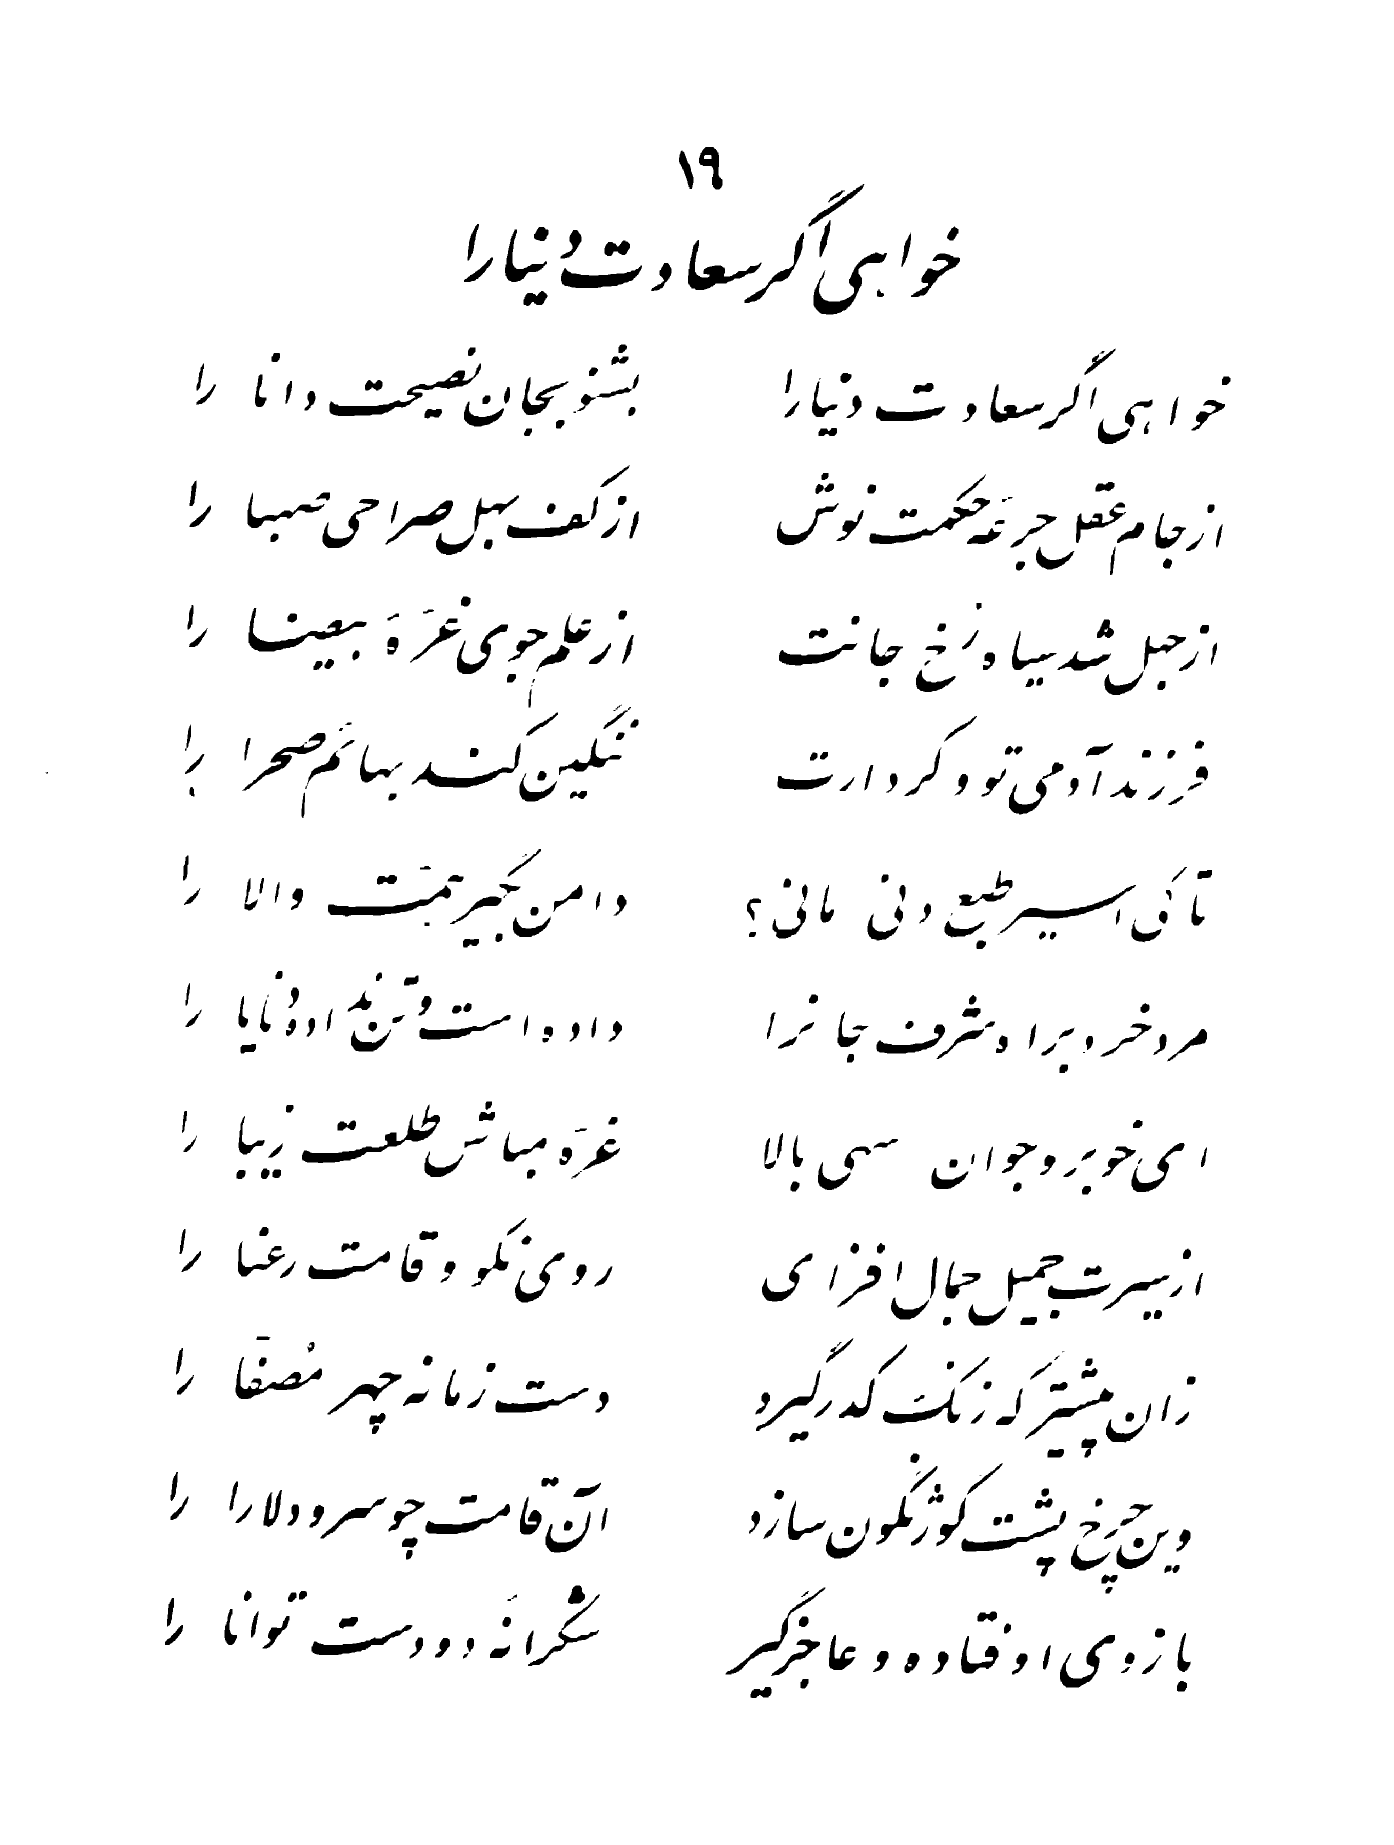 ۱۹
خواهی اگر سعادت دنیا را
خواهی اگر سعادت دنیا را بشنو بجان نصیحت دانا را
از جام عقل جرعهٔ حکمت نوش از کف بهل صراحی صهبا را
از جهل شد سیاه رخ جانت از علم جوی غرّهٔ بیضا را
فرزند آدمی تو و کردارت ننگین کند بهائم صحرا را
تا کی اسیر طبع دنی مانی؟ دامن بگیر همّت والا را
مرد خرد براه شرف جانرا داده است و تن نداده دنایا را
ای خوبرو جوان سهی بالا غرّه مباش طلعت زیبا را
از سیرت جمیل جمال افزای روی نکو و قامت رعنا را
زان پیشتر که زنگ کدر گیرد دست زمانه چهر مُصفّا را
وین چرخ پشت کوژ نگون سازد آن قامت چو سرو دلارا را
بازوی اوفتاده و عاجز گیر شکرانهٔ دو دست توانا را